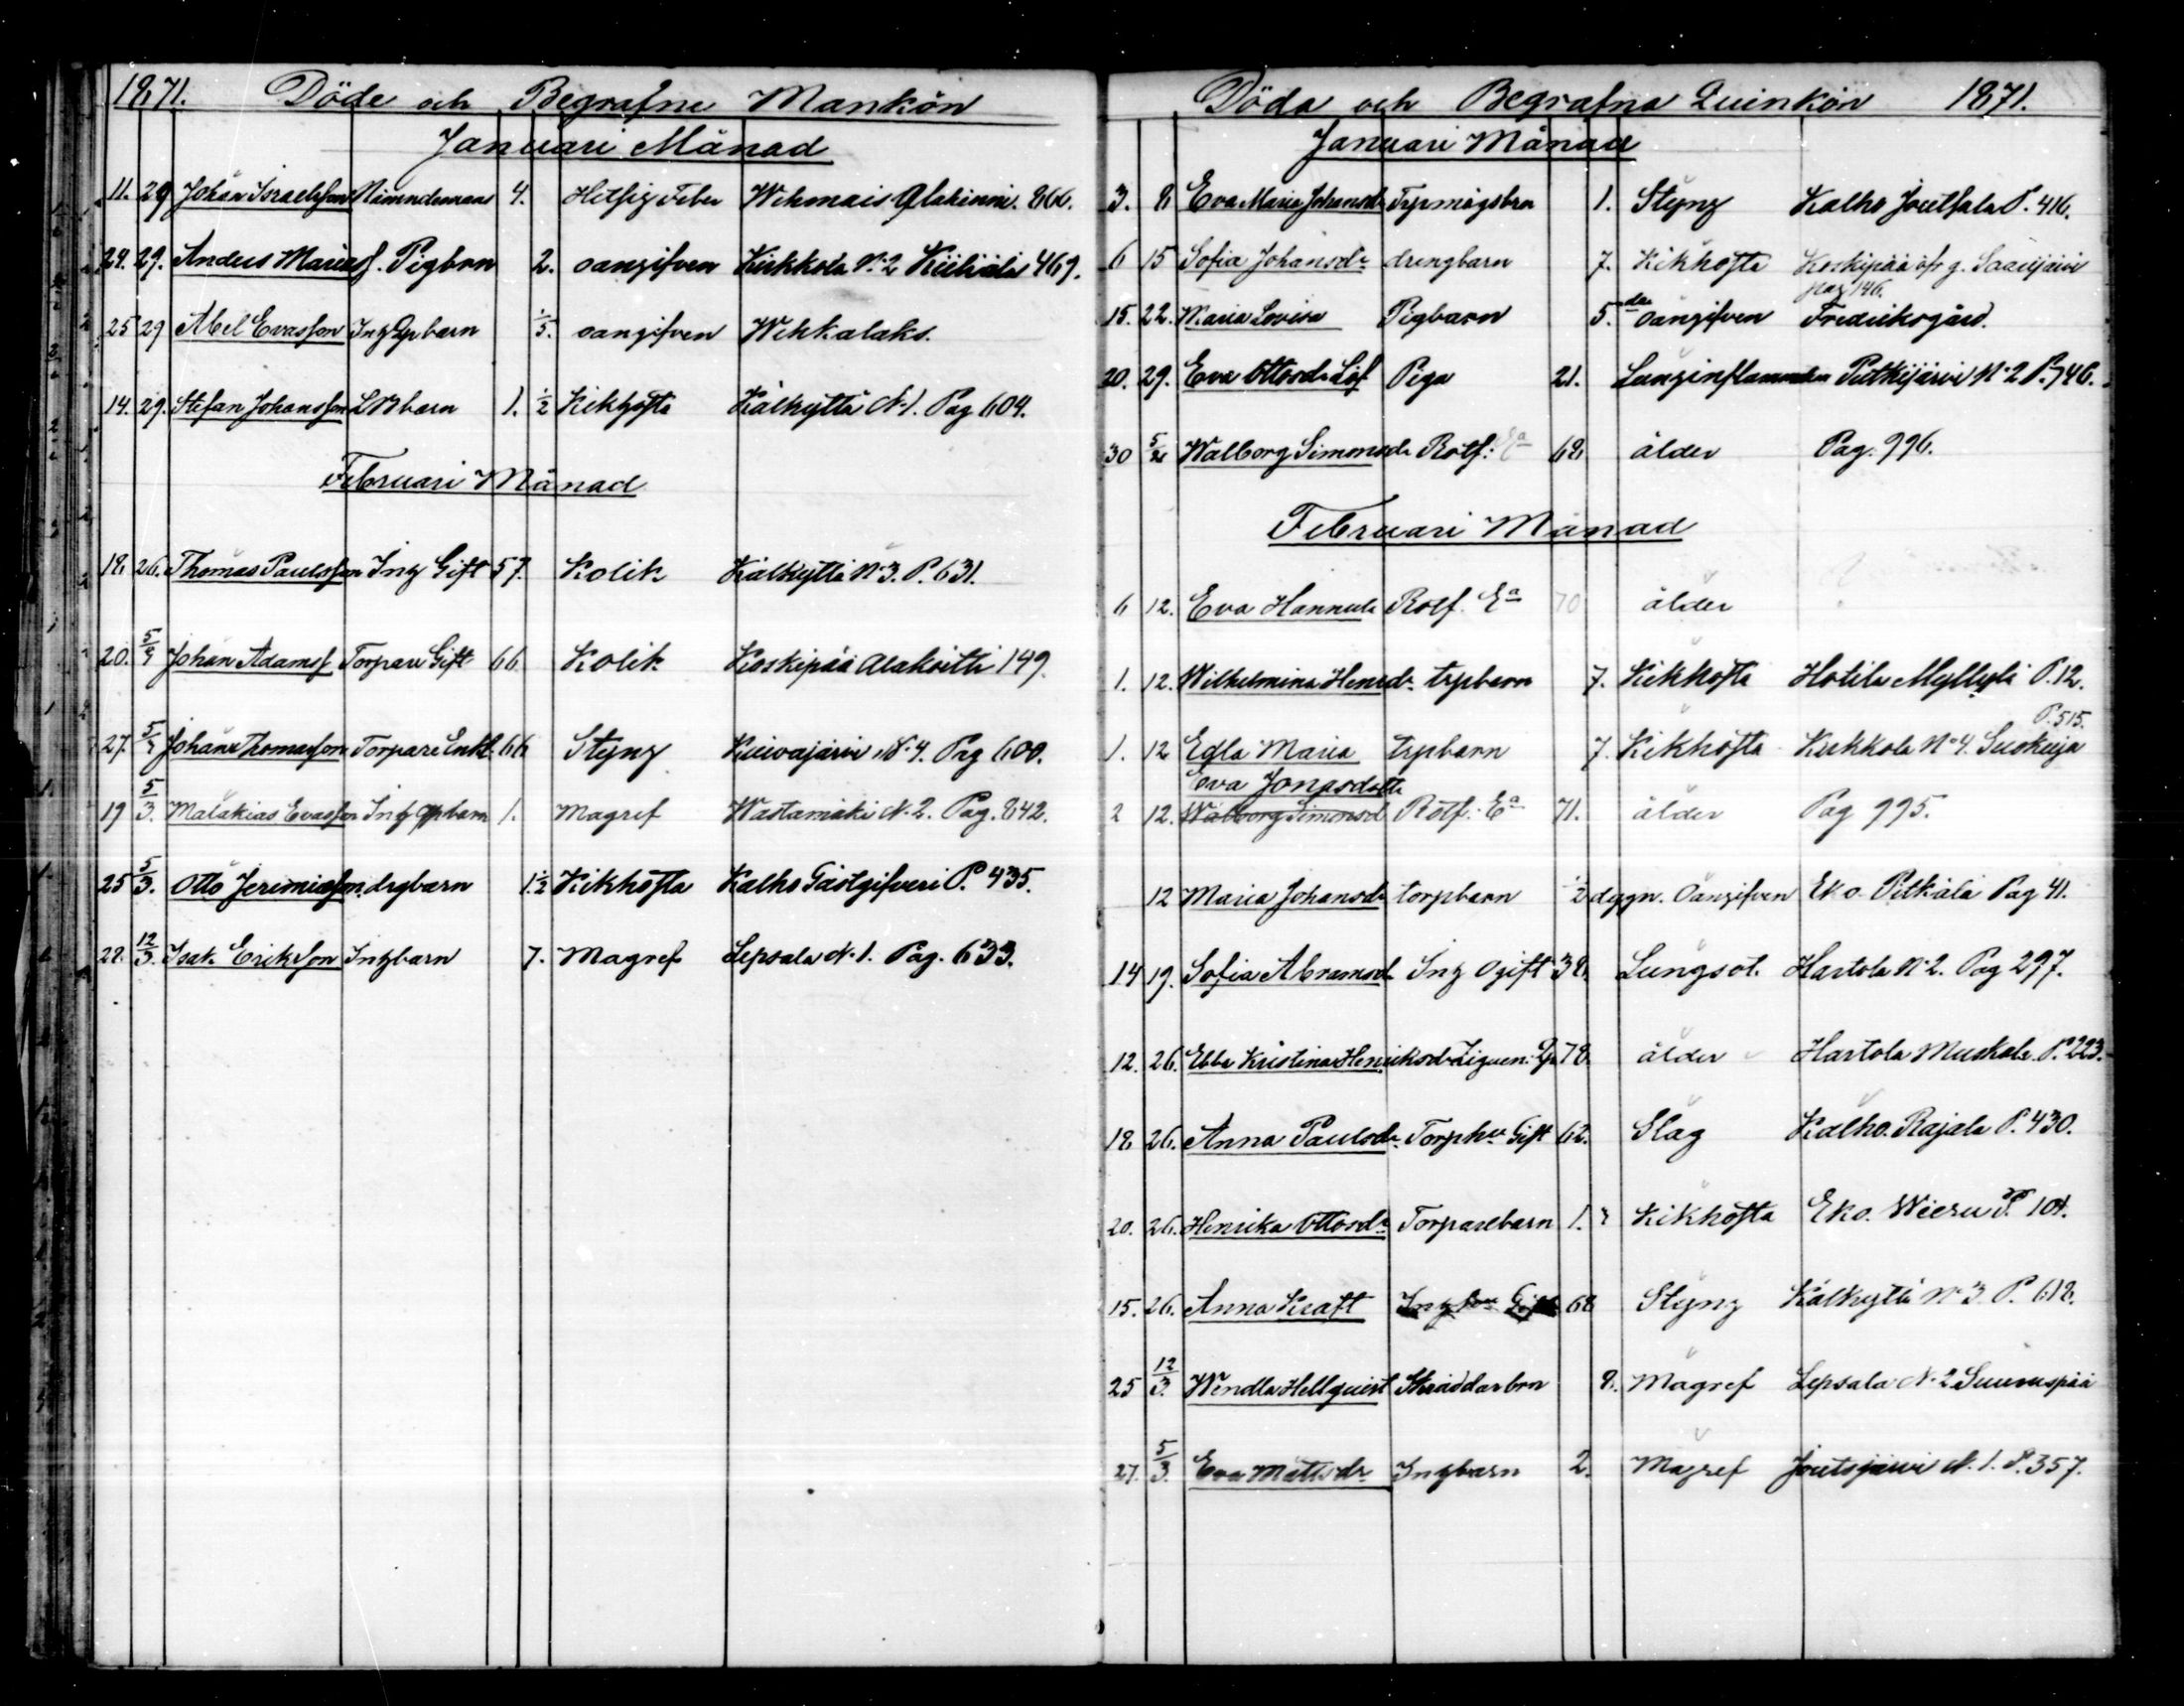 1871. Döde och Begrafne Mankön
Januari Månad
11. 29 Johan Israelsson Nämndemans 4. Hetsig Feber Wehmais Alakinni. 866.
24. 29. Anders Mariæs. Pigbrn 2. oangifven Kirkkola No 2 Kiihälä 469.
25 29 Abel Evasson Inh Qp barn 1/5. oangifven Wehkalaks.
14. 29. Stefan Johansson LBbarn 1. 1/2 Kikhosta Kälkyttä N. 1. Pag 604.
Februari Månad
18. 26. Thomas Paulsson Inh Gift 57. Kolik Kälkyttä No 3. P. 631.
20. 5/3 Johan Adamss. Torpare Gift 66 Kolik Koskipää Alakoitti 149.
27. 5/3 Johan Thomasson Torpare Enkl. 66 Styng Kuivajärvi N. 4. Pag 600.
19 5/3. Malakias Evasson Inh Qpbarn 1. Magref Wastamäki N. 2. Pag. 842.
25 5/3. Otto Jeremiasson drgbarn 1. 1/2 Kikhosta Kalho Gästgifveri P. 435.
28. 12/3. Isak Eriksson Inhbarn 7. Magref Lepsala N. 1. Pag. 633.
Döda och Begrafna Quinkön 1871.
Januari Månad
3. 8 Eva Maria Johansdr Trpmågsbrn 1. Styng Kalho Joutsala P. 416.
6 15 Sofia Johansdr drengbarn 7. Kikhosta Koskipää Saarijärvi
pag 146.
15. 22. Maria Lovisa Pigbarn 5. dar oangifven Fredriksgård.
20. 29. Eva Ottosdr Löf Piga 21. Lunginflammation Putkijärvi No 2 P. 746.
30 5/2 Walborg Simonsdr Rotf: Ea 68 ålder Pag. 996.
Februari Månad
6 12. Eva Hannula Rotf. Ea 70 ålder
1. 12. Wilhelmina Henrdr. trpbarn 7. Kikhosta Hotila Myllylä P. 12.
P. 515.
1. 12 Edla Maria trpbarn 7. Kikhosta Kirkkola No 4. Suokuja
Eva Jonasdotte
2 12. Walborg Simonsd Rotf. Ea 71. ålder Pag 995.
12 Maria Johansdr torpbarn 1/2 dygn. Oangifven Eko. Pitkälä Pag 41.
14 19. Sofia Abramsdr Inh Ogift 38. Lungsot. Hartola No 2. Pag 297.
12. 26. Ebba Kristina Henriksdr Ziguen. Qp 78. ålder Hartola Muskala. P. 223.
18 26. Anna Paulsdr. Torphu Gift 62. Slag Kalho. Rajala P. 430.
20. 26. Henrika Ottosdr Torparebarn 1. Kikhosta Eko. Wieru P. 104.
15. 26. Anna Kraft Inhhu Gift 68 Styng Kälkyttä No 3. P. 618.
25 12/3. Wendla Hellquist Skräddarbrn 8. Magref Lepsala N. 2 Suuruspää
27. 5/3. Eva Mattsdr Inhbarn 2. Magref Joutsjärvi N. 1. P. 357.